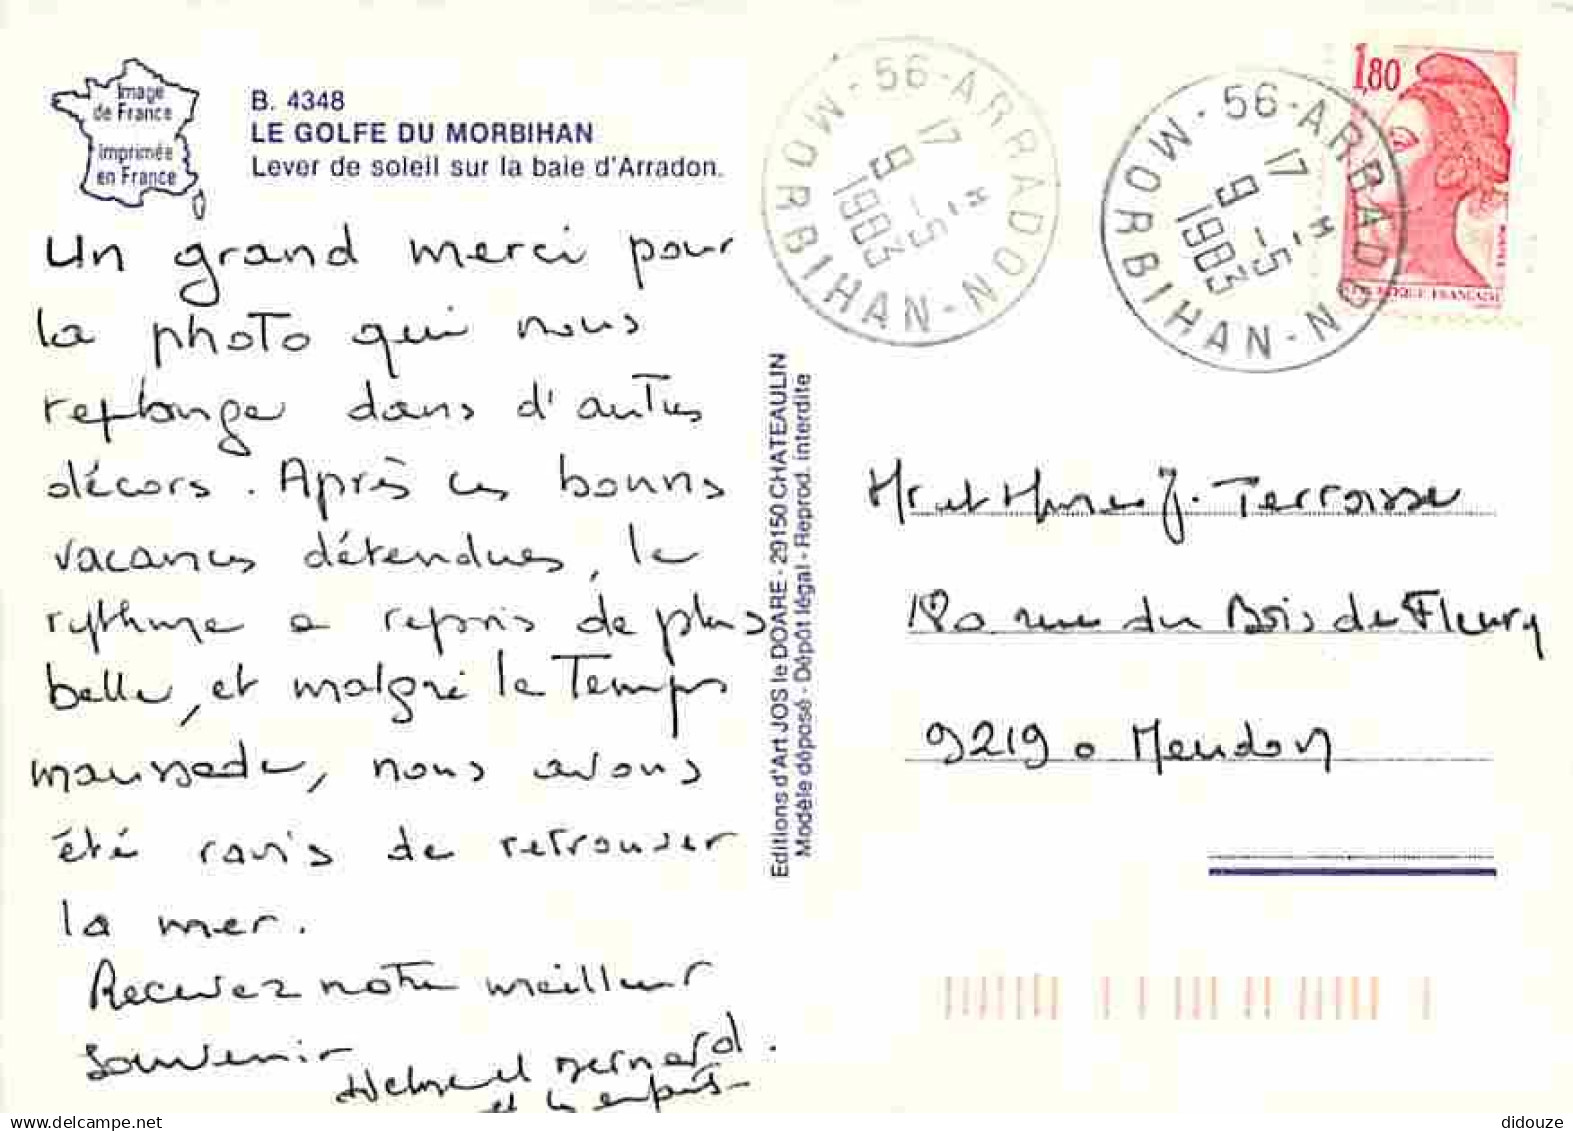 Image
de France
Imprimée
en France
B. 4348
LE GOLFE DU MORBIHAN
Lever de soleil sur la baie d'Arradon.
Un grand merci pour
la photo qui nous
replonge dans d'autres
décors. Après ces bonnes
vacances détendues, le
rythme a repris de plus
belle, et malgré le Temps
maussade, nous avons
été ravis de retrouver
la mer.
Recevez notre meilleur
souvenir
et Bernard.
et les
Editions d'Art JOS le DOARE - 29150 CHATEAULIN
Modèle déposé - Dépôt légal - Reprod. interdite
56-ARRADON-MORBIHAN
17 H
9-5
1983
56-ARRADON-MORBIHAN
17 H
9-5
1983
1,80
REPUBLIQUE FRANÇAISE
Mr et Mme J. Terrasse
rue du Bois de Fleury
92190 Meudon
didouze